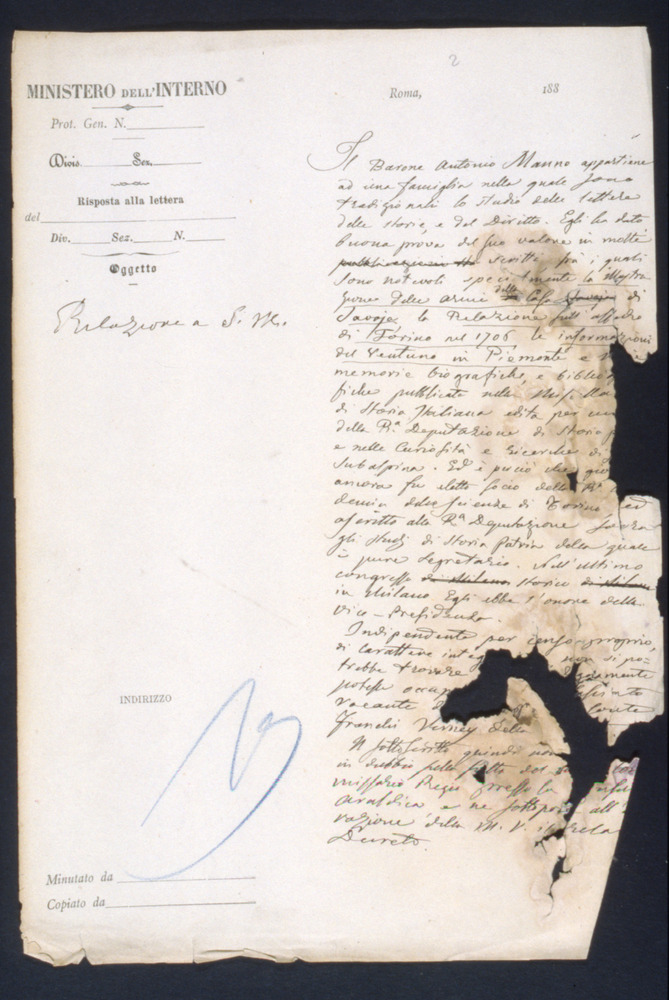 2
MINISTERO DELL'INTERNO
Roma, 188
Prot. Gen. N.
Divis. Sez.
Risposta alla lettera
del
Div. Sez. N.
Oggetto
Relazione a S. M.
Il Barone Antonio Manno appartiene
ad una famiglia nella quale sono
tradizionali lo studio delle lettere
della storia, e del Diritto. Egli ha dato
buona prova del suo valore in molti
scritti fra i quali
sono notevoli specialmente la illustra
zione delle armi della Casa di
Savoja, la Relazione sull'assedio
di Torino nel 1706 le informazioni
del Ventuno in Piemonte e
memorie biografiche, e biblio
fiche pubblicate nella
di Storia Italiana edita per
della Rª Deputazione di Storia
e nelle Curiosità e ricerche di
Subalpina. Ed è perciò che
ancora fu eletto socio della Rª
demia delle scienze di Torino ed
ascritto alla Rª Deputazione sovra
gli studj di Storia Patria della quale
è pure Segretario. Nell'ultimo
congresso Storico
in Milano Egli ebbe l'onore della
Vice-Presidenza.
Indipendente per censo proprio,
di carattere integ non si po=
trebbe trovare
potesse occup
vacante
Franchi Verney della
Il sottoscritto quindi non
in dubbio
missario Regio presso la
araldica e ne all'
vazione della M. V.
Decreto.
INDIRIZZO
Minutato da
Copiato da